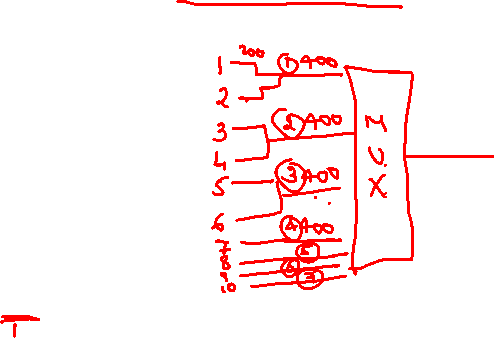 1 200 ① 400
2
3 ② 400
4
5 ③ 400
6
④ 400
7
8 5
9 6
10 7
MUX